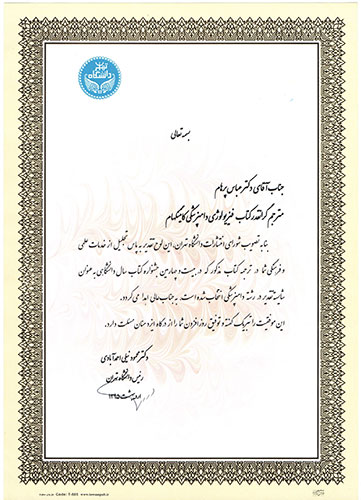 دانشگاه تهران
بسمه تعالی
جناب آقای دکتر عباس پرهام
مترجم گرانقدر کتاب فیزیولوژی دامپزشکی کانینگهام
بنا به تصویب شورای انتشارات دانشگاه تهران، این لوح تقدیر به پاس تجلیل از خدمات علمی
و فرهنگی شما در ترجمه کتاب مذکور که در بیست و چهارمین جشنواره کتاب سال دانشگاهی به عنوان
شایسته تقدیر در رشته دامپزشکی انتخاب شده است، به جنابعالی اهدا می گردد.
این موفقیت را تبریک گفته و توفیق روز افزون شما را از درگاه ایزد منان مسئلت دارد.
دکتر محمود نیلی احمدآبادی
رئیس دانشگاه تهران
اردیبهشت ۱۳۹۵